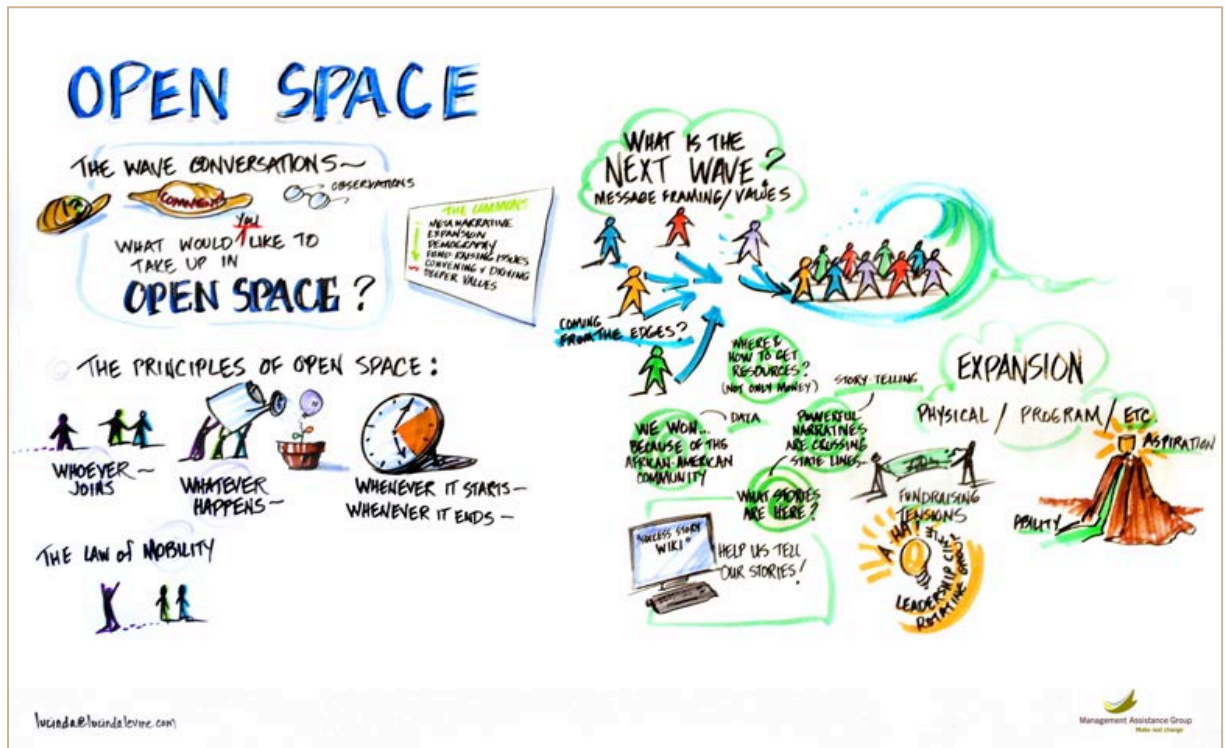 OPEN SPACE
THE WAVE CONVERSATIONS~
?
COMMENTS
OBSERVATIONS
YOU
WHAT WOULD LIKE TO
TAKE UP IN
OPEN SPACE?
THE COMMONS
META NARRATIVE
EXPANSION
DEMOGRAPHY
FUND RAISING ISSUES
CONVENING & DRIVING
DEEPER VALUES
THE PRINCIPLES OF OPEN SPACE:
WHOEVER~
JOINS
WHATEVER
HAPPENS~
WHENEVER IT STARTS~
WHENEVER IT ENDS~
THE LAW of MOBILITY
WHAT IS THE
NEXT WAVE?
MESSAGE FRAMING/VALUES
COMING
FROM THE EDGES?
WHERE &
HOW TO GET
RESOURCES?
(NOT ONLY MONEY)
STORY-TELLING
DATA
WE WON...
BECAUSE OF THE
AFRICAN-AMERICAN
COMMUNITY
POWERFUL
NARRATIVES
ARE CROSSING
STATE LINES~
WHAT STORIES
ARE HERE?
"SUCCESS STORY
WIKI"
HELP US TELL
OUR STORIES!
EXPANSION
PHYSICAL / PROGRAM / ETC.
ASPIRATION
ABILITY
FUNDRAISING
TENSIONS
A HA!
LEADERSHIP
ROTATING
lucinda@lucindalevine.com
Management Assistance Group
Make real change